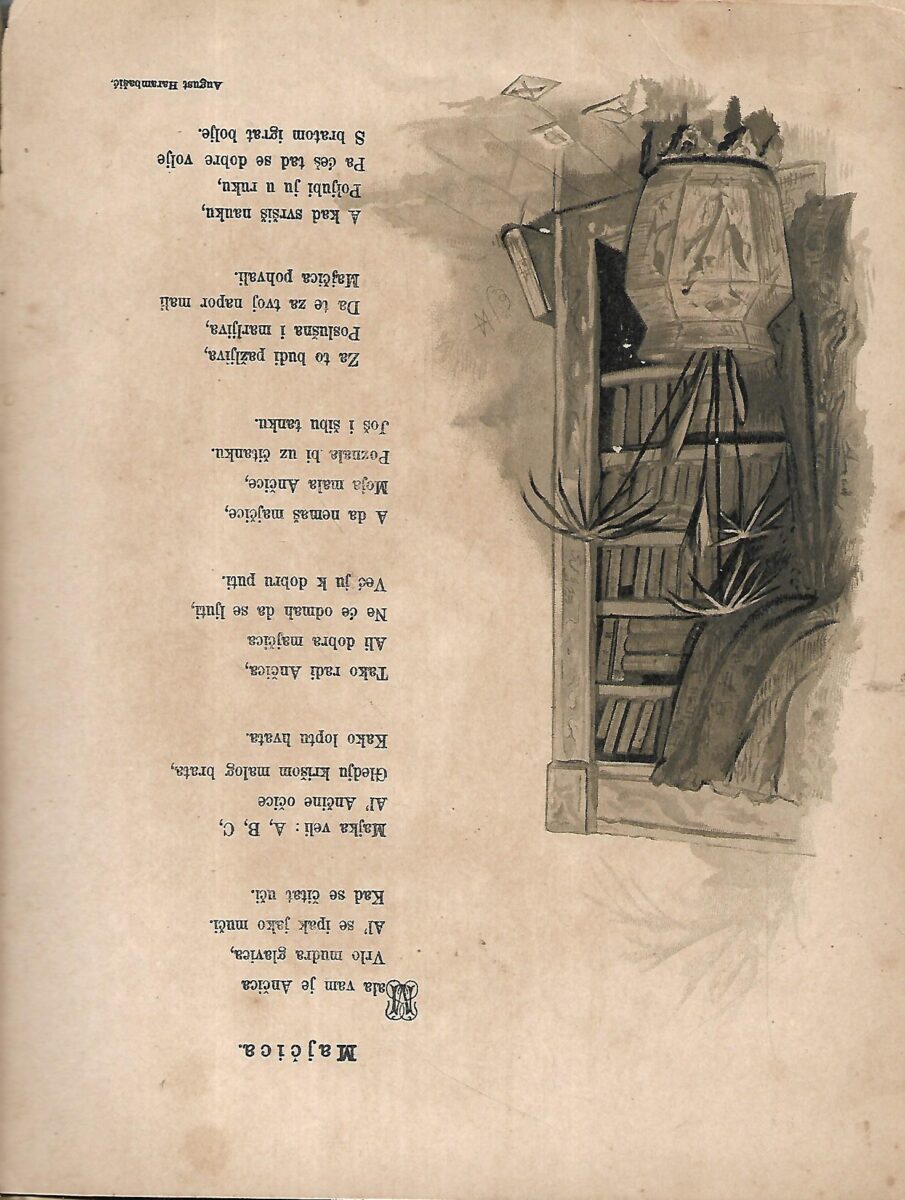 Majčica.
Mala vam je Ančica
Vrlo mudra glavica,
Al' se ipak jako muči.
Kad se čitat uči.
Majka veli: A, B, C,
Al' Ančine očice
Gledju krišom malog brata,
Kako loptu hvata.
Tako radi Ančica,
Ali dobra majčica
Ne će odmah da se ljuti,
Već ju k dobru puti.
A da nemaš majčice,
Moja mala Ančice,
Poznala bi uz čitanku.
Još i šibu tanku.
Za to budi pažljiva,
Poslušna i marljiva,
Da te za tvoj napor mali
Majčica pohvali.
A kad svršiš nauku,
Poljubi ju u ruku,
Pa ćeš tad se dobre volje
S bratom igrat bolje.
August Harambašić.